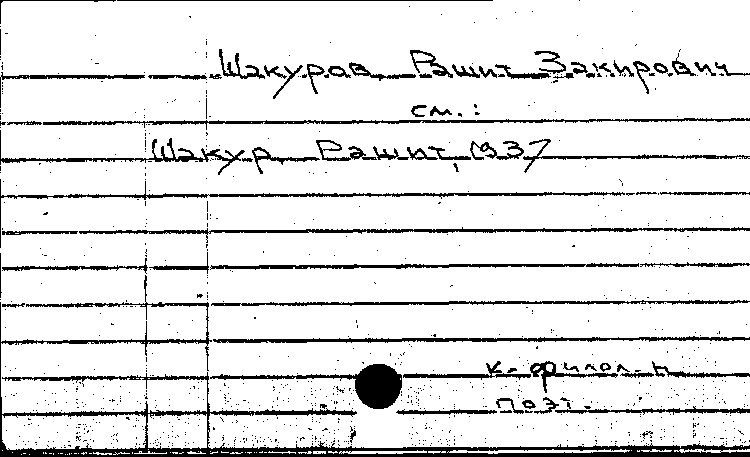 Шакуров, Рашит Закирович
см.:
Шакур, Рашит, 1937
к. филол. н.
поэт.